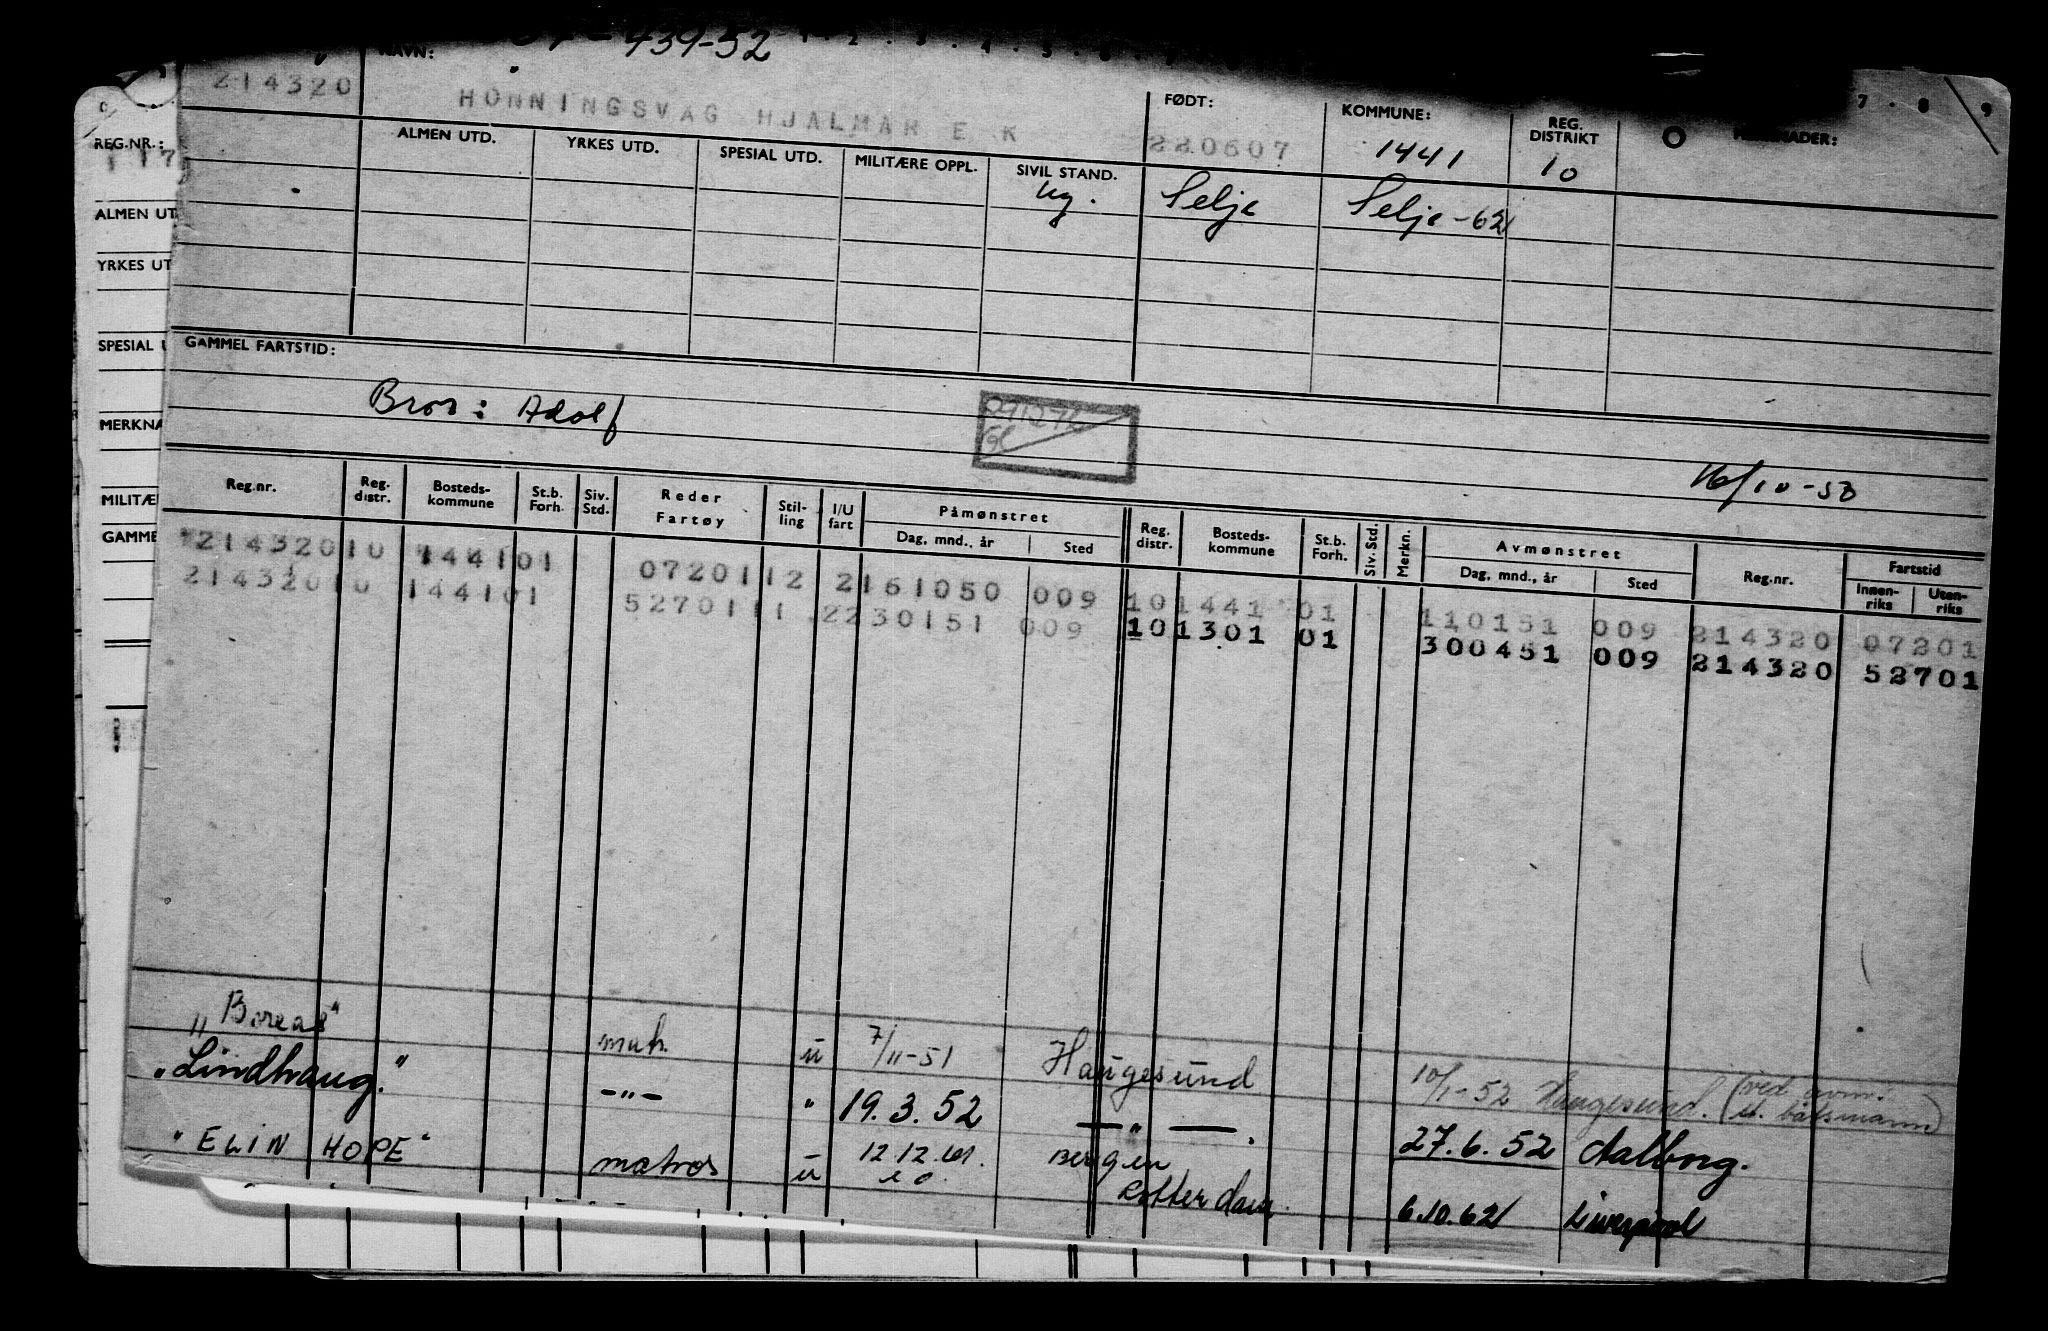 439-52
NAVN:
214320
HONNINGSVAG HJALMAR E K
FØDT:
220607
KOMMUNE:
1441
REG. DISTRIKT
10
7 . 8 9
REG.NR.:
ALMEN UTD. YRKES UTD. SPESIAL UTD. MILITÆRE OPPL. SIVIL STAND.
ug. Selje Selje-62
ALMEN UT
YRKES UT
SPESIAL U
MERKNA
MILITÆ
GAMME
GAMMEL FARTSTID:
Bror: Adolf
16/10-53
Reg.nr. Reg. distr. Bosteds- kommune St.b. Forh. Siv. Std. Reder Fartøy Stil- ling I/U fart Påmønstret Dag, mnd., år Sted Reg. distr. Bosteds- kommune St.b. Forh. Siv. Std. Merkn. Avmønstret Dag, mnd., år Sted Reg.nr. Fartstid Innen- riks Uten- riks
214320 10 1441 01 07201 12 2 161050 009 10 1441 01 110151 009 214320 07201
214320 10 1441 01 52701 11 2 230151 009 10 1301 01 300451 009 214320 52701
"Boreas" matr. u 7/11-51 Haugesund 10/1-52 Haugesund. (ved avm. båtsmann)
"Lindhaug." -"- " 19.3.52 -"- . 27.6.52 Aalborg.
"ELIN HOPE" matros u 12.12.61. Bergen
Rotterdam. 6.10.62 Liverpool